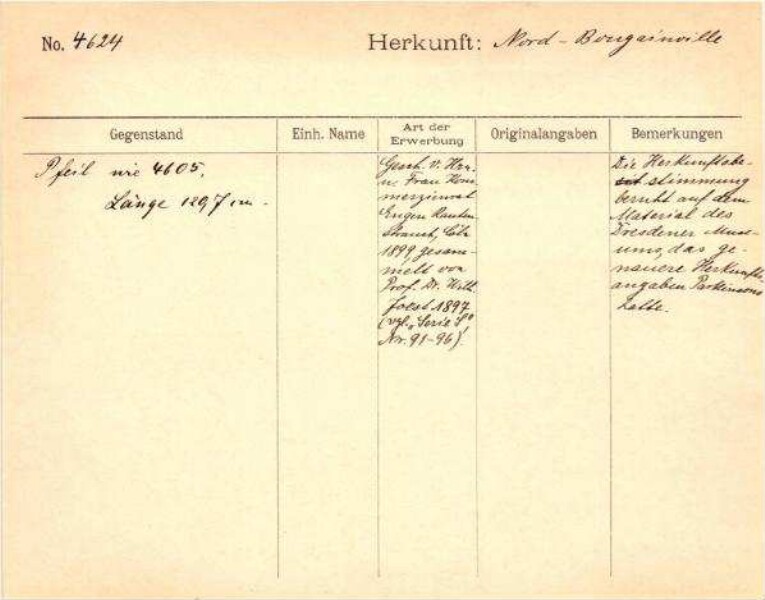 No. 4624
Herkunft: Nord-Bougainville
Gegenstand
Einh. Name
Art der
Erwerbung
Originalangaben
Bemerkungen
Pfeil wie 4605.
Länge 129,7 cm.
Gesch. v. Hrn.
u. Frau Kom-
merzienrat
Eugen Rauten-
strauch, Cöln
1899, gesam-
melt von
Prof. Dr. Wilh.
Joest 1897
(vgl. „Serie S"
Nr. 91-96).
Die Herkunftsbe-
stimmung
beruht auf dem
Material des
Dresdener Muse-
ums, das ge-
nauere Herkunfts-
angaben Parkinsons
hatte.